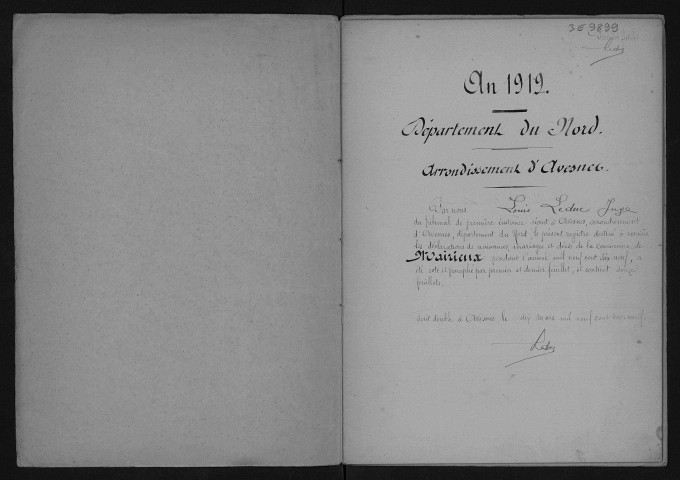 3E 9899
An 1919.
Département du Nord.
Arrondissement d'Avesnes.
Par nous Louis Leduc Juge
du tribunal de première instance séant à Avesnes, arrondissement
d'Avesnes, département du Nord, le présent registre destiné à recevoir
les déclarations de naissances, mariages et décès de la commune de
Mairieux pendant l'année mil neuf cent dix neuf, a
été coté et paraphé par premier et dernier feuillet, et contient
feuillets.
Fait double à Avesnes le dix mars mil neuf cent dix neuf.
Leduc